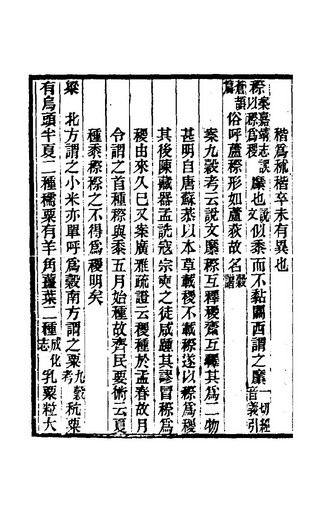 稭爲秫稭卒未有異也
穄 案嘉靖志誤以穄爲稷 糜也 說文 似黍而不黏關西謂之糜 一切經音義引
蒼頡篇 俗呼蘆穄形如蘆荻故名 穀譜
案九穀考云說文糜穄互釋稷齋互釋其爲二物
甚明自唐蘇恭以本草載稷不載穄遂以穄爲稷
其後陳藏器孟詵寇宗奭之徒咸踵其謬冒穄爲
稷由來久已又案廣雅疏證云稷種於孟春故月
令謂之首種穄與黍五月始種故齊民要術云夏
種黍穄穄之不得爲稷明矣
粱 北方謂之小米亦單呼爲穀南方謂之粟 九穀考 秔粟
有烏頭半夏二種穤粟有羊角薑葉二種 成化志 乳粟粒大